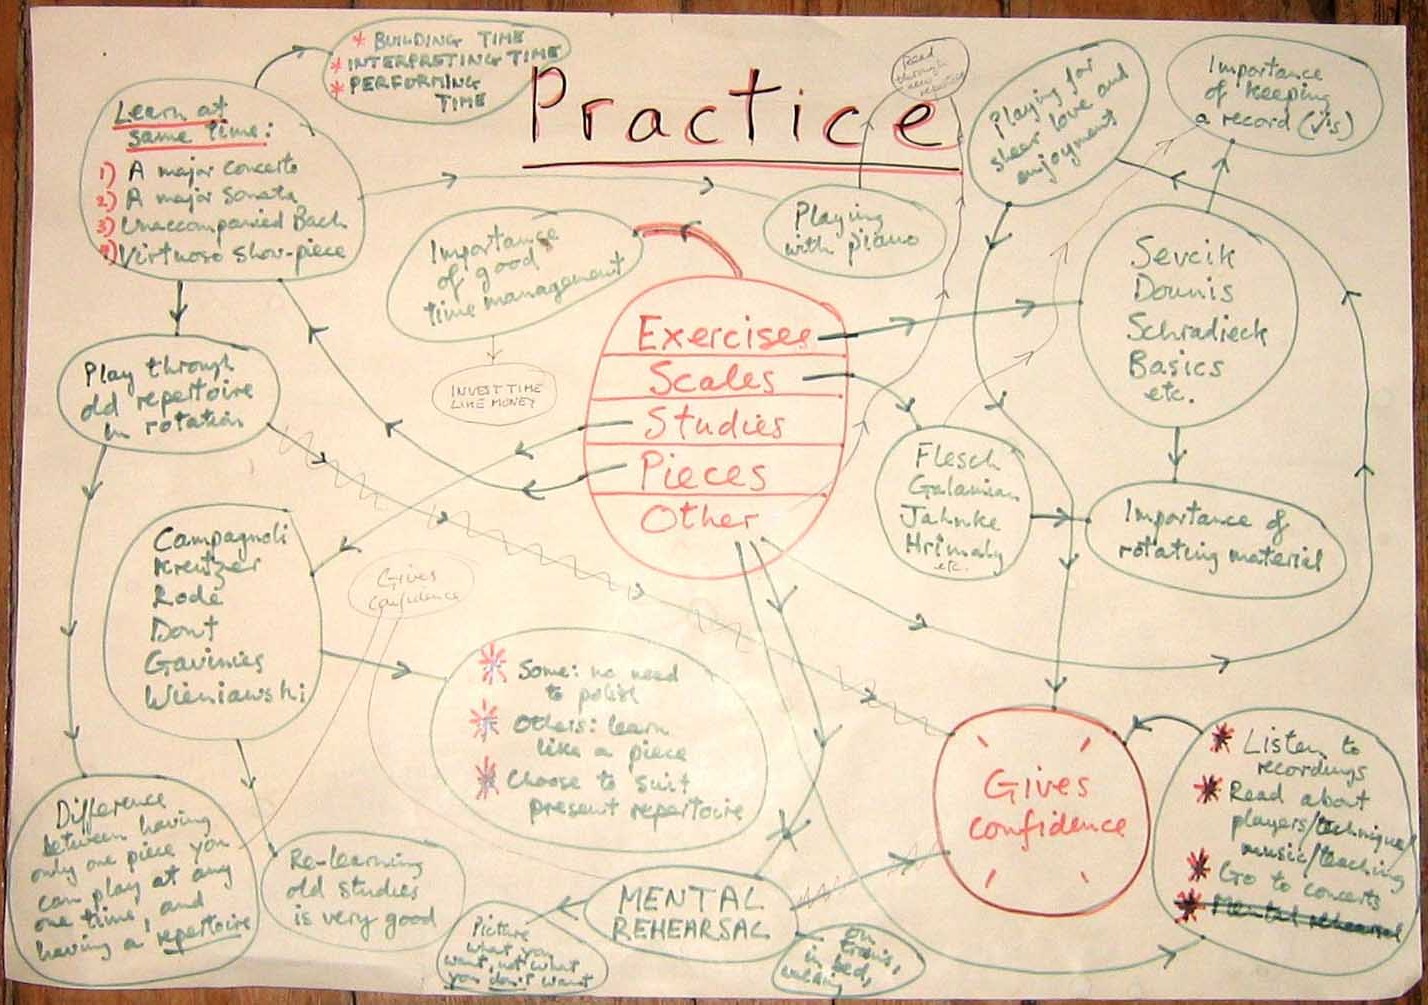 Practice
* BUILDING TIME
* INTERPRETING TIME
* PERFORMING
TIME
Learn at
same time:
1) A major concerto
2) A major Sonata
3) Unaccompanied Bach
4) Virtuoso show-piece
Read
through
new
repertoire
Playing for
sheer love and
enjoyment
Importance
of keeping
a record (✓'s)
Playing
with piano
Importance
of good
time management
INVEST TIME
LIKE MONEY
Exercises
Scales
Studies
Pieces
Other
Sevcik
Dounis
Schradieck
Basics
etc.
Play through
old repertoire
in rotation
Flesch
Galamian
Jahnke
Hrimaly
etc.
Importance of
rotating material
Campagnoli
Kreutzer
Rode
Dont
Gavinies
Wieniawski
Gives
confidence
* Some: no need
to polish
* Others: learn
like a piece
* Choose to suit
present repertoire
Gives
confidence
* Listen to
recordings
* Read about
players/technique/
music/teaching
* Go to concerts
* Mental rehearsal
Difference
between having
only one piece you
can play at any
one time, and
having a repertoire
Re-learning
old studies
is very good
MENTAL
REHEARSAL
Picture
what you
want, not what
you don't want
on
trains,
in bed,
walking